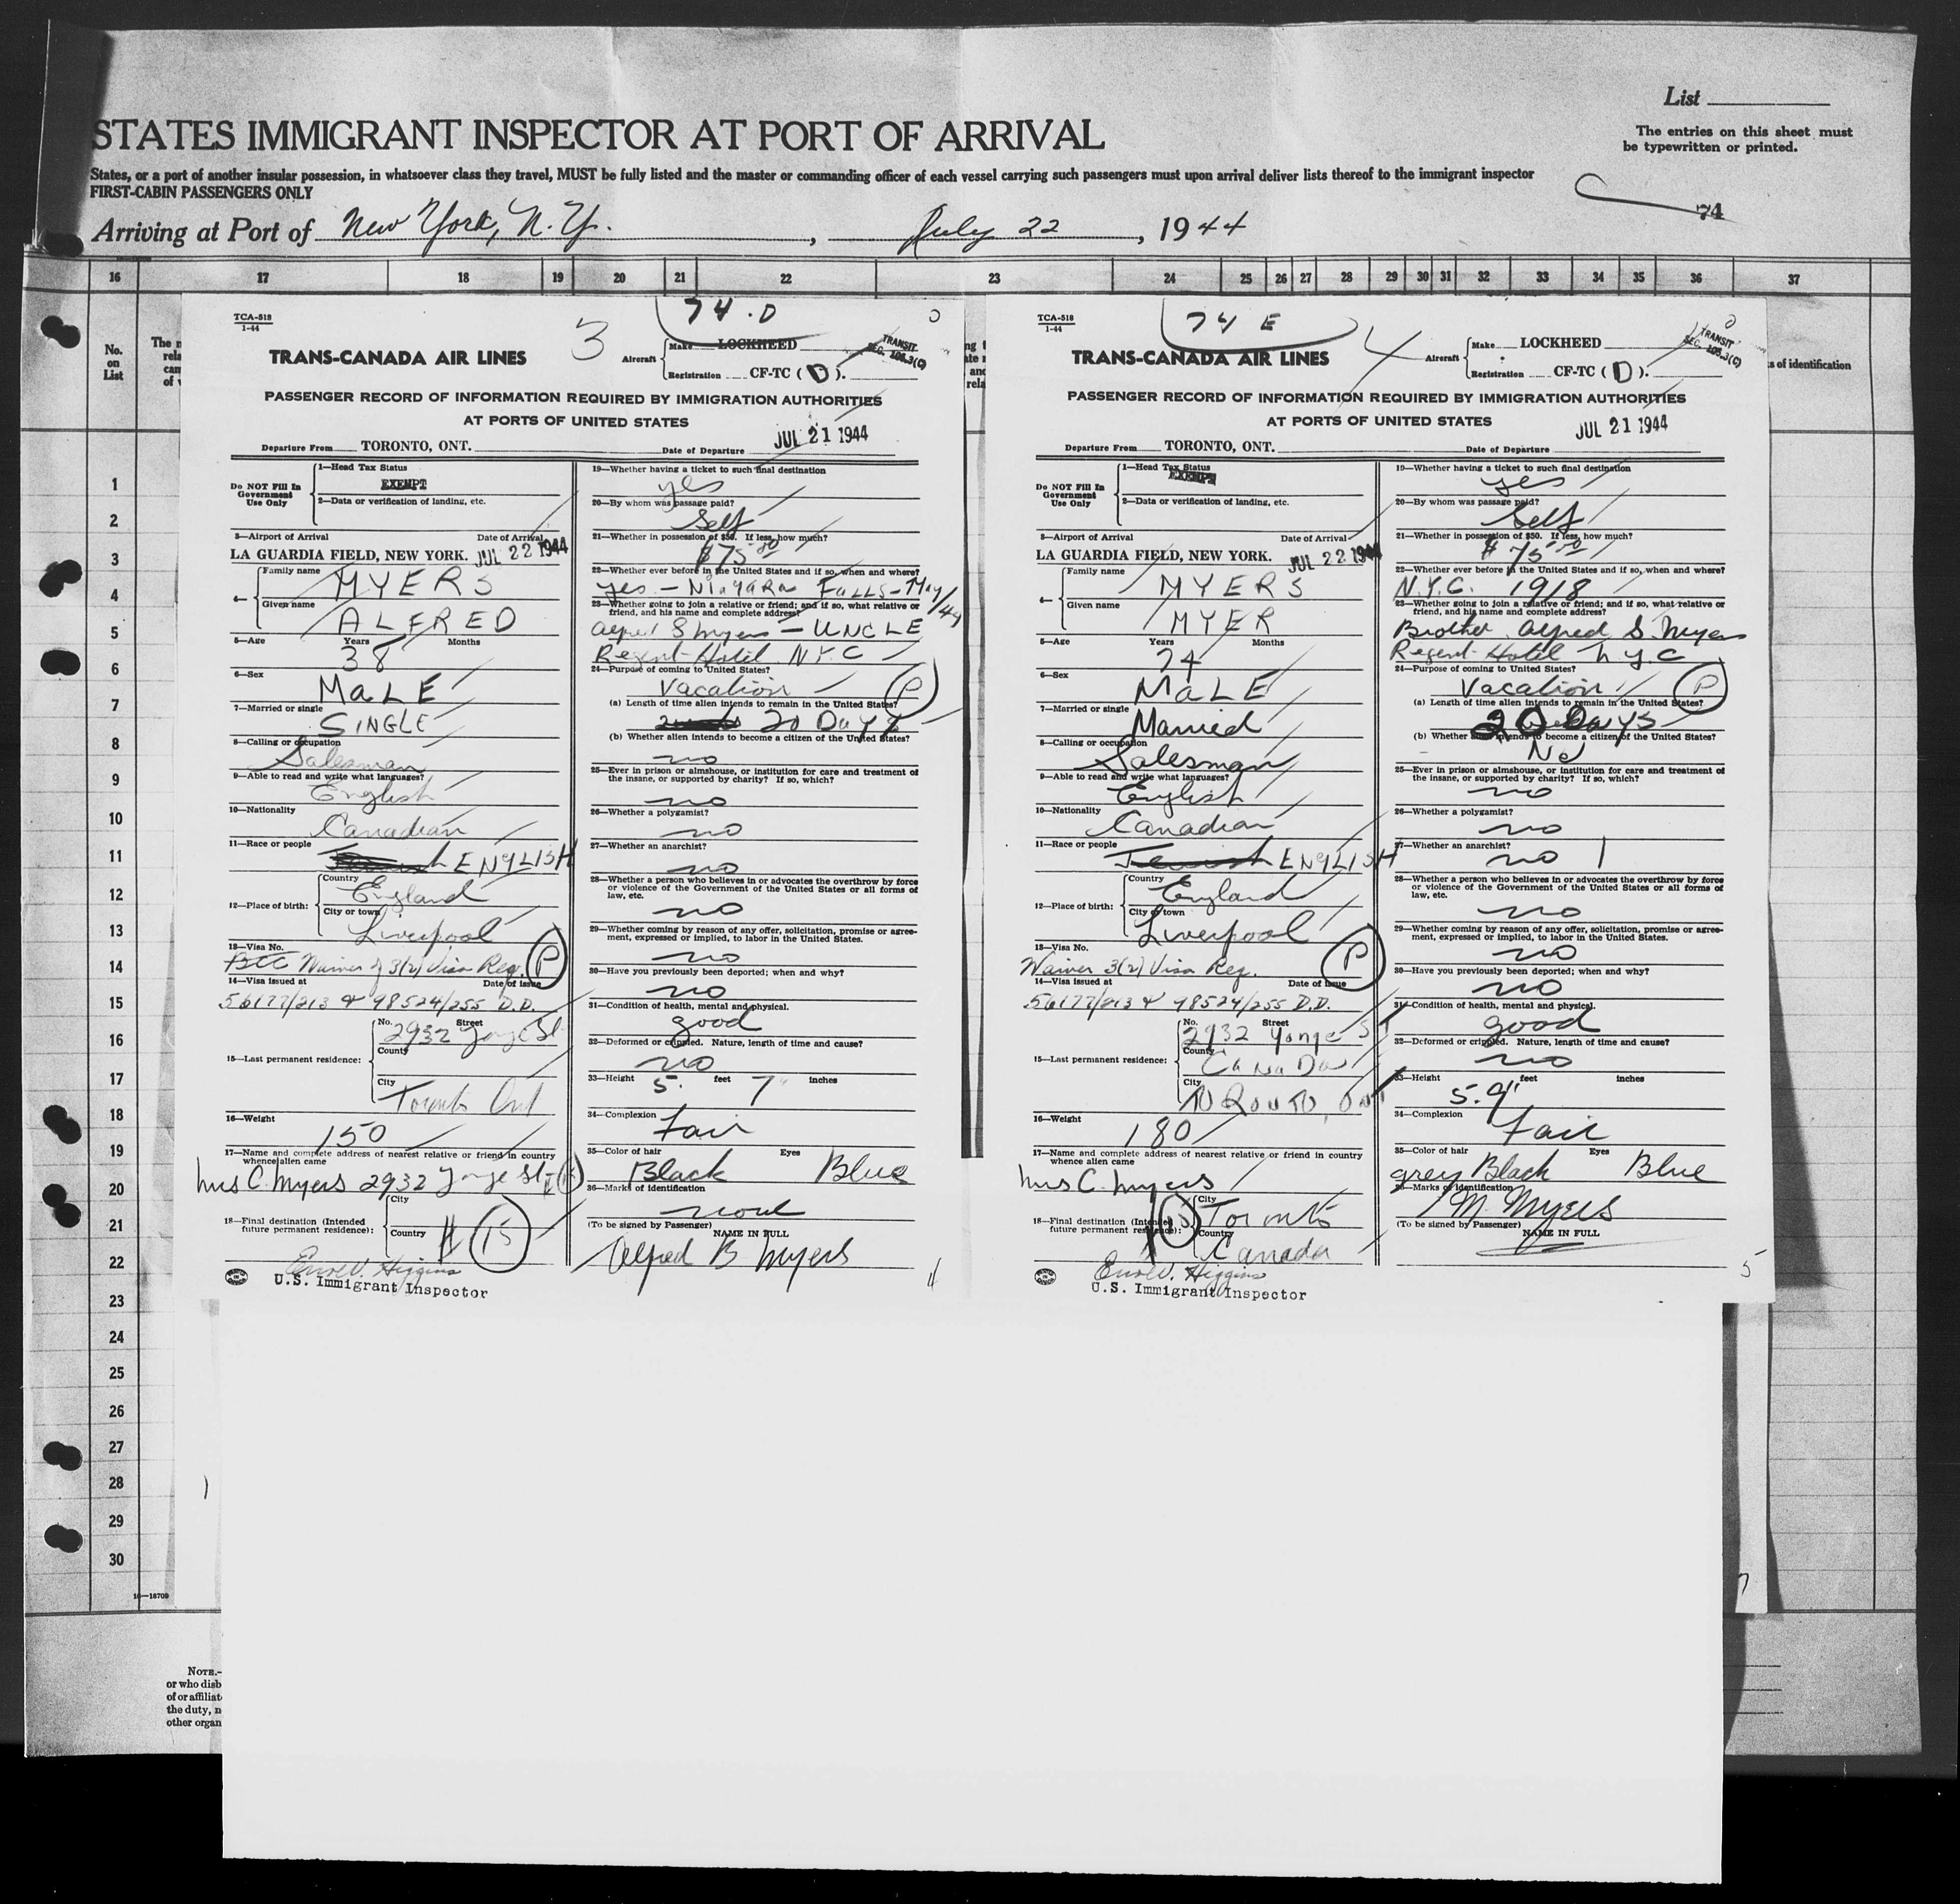 List
The entries on this sheet must
be typewritten or printed.
STATES IMMIGRANT INSPECTOR AT PORT OF ARRIVAL
States, or a port of another insular possession, in whatsoever class they travel, MUST be fully listed and the master or commanding officer of each vessel carrying such passengers must upon arrival deliver lists thereof to the immigrant inspector
FIRST-CABIN PASSENGERS ONLY
74
Arriving at Port of New York, N.Y. , July 22 , 1944
16 17 18 19 20 21 22 23 24 25 26 27 28 29 30 31 32 33 34 35 36 37
No. on List
s of identification
1
2
3
4
5
6
7
8
9
10
11
12
13
14
15
16
17
18
19
20
21
22
23
24
25
26
27
28
29
30
16—18709
NOTE.-
or who disb
of or affiliat
the duty, n
other organ
TCA-518
1-44
3
74.D
TRANS-CANADA AIR LINES
Aircraft
Make LOCKHEED
Registration CF-TC (D).
TRANSIT
SEC. 108.3(C)
PASSENGER RECORD OF INFORMATION REQUIRED BY IMMIGRATION AUTHORITIES
AT PORTS OF UNITED STATES
JUL 21 1944
Departure From TORONTO, ONT. Date of Departure
Do NOT Fill In Government Use Only
1—Head Tax Status
EXEMPT
2—Data or verification of landing, etc.
3—Airport of Arrival Date of Arrival
LA GUARDIA FIELD, NEW YORK. JUL 22 1944
4— Family name
MYERS
Given name
ALFRED
5—Age Years Months
38
6—Sex
MaLE
7—Married or single
SINGLE
8—Calling or occupation
Salesman
9—Able to read and write what languages?
English
10—Nationality
Canadian
11—Race or people
ENGLISH
12—Place of birth: Country
England
City or town
Liverpool
13—Visa No.
BCC Waiver of 3(2) Visa Reg. P
14—Visa issued at Date of issue
56177/213 & 98524/255 D.D.
15—Last permanent residence: No. Street
2932 Yonge St
County
City
Toronto Ont
16—Weight
150
17—Name and complete address of nearest relative or friend in country
whence alien came
Mrs C. Myers 2932 Yonge St
18—Final destination (Intended
future permanent residence):
City
Country
15
U.S. Immigrant Inspector
19—Whether having a ticket to such final destination
yes
20—By whom was passage paid?
Self
21—Whether in possession of $50. If less, how much?
$75.00
22—Whether ever before in the United States and if so, when and where?
yes — Niagara Falls — May/44
23—Whether going to join a relative or friend; and if so, what relative or
friend, and his name and complete address?
Alfred S Myers — UNCLE
Regent Hotel N.Y.C
24—Purpose of coming to United States?
Vacation P
(a) Length of time alien intends to remain in the United States?
20 Days
(b) Whether alien intends to become a citizen of the United States?
no
25—Ever in prison or almshouse, or institution for care and treatment of
the insane, or supported by charity? If so, which?
no
26—Whether a polygamist?
no
27—Whether an anarchist?
no
28—Whether a person who believes in or advocates the overthrow by force
or violence of the Government of the United States or all forms of
law, etc.
no
29—Whether coming by reason of any offer, solicitation, promise or agree-
ment, expressed or implied, to labor in the United States.
no
30—Have you previously been deported; when and why?
no
31—Condition of health, mental and physical.
good
32—Deformed or crippled. Nature, length of time and cause?
no
33—Height 5 feet 7 inches
34—Complexion
Fair
35—Color of hair Eyes
Black Blue
36—Marks of identification
none
(To be signed by Passenger) NAME IN FULL
Alfred B Myers
TCA-518
1-44
74 E
4
TRANS-CANADA AIR LINES
Aircraft
Make LOCKHEED
Registration CF-TC (D).
TRANSIT
SEC. 108.3(C)
PASSENGER RECORD OF INFORMATION REQUIRED BY IMMIGRATION AUTHORITIES
AT PORTS OF UNITED STATES
JUL 21 1944
Departure From TORONTO, ONT. Date of Departure
Do NOT Fill In Government Use Only
1—Head Tax Status
EXEMPT
2—Data or verification of landing, etc.
3—Airport of Arrival Date of Arrival
LA GUARDIA FIELD, NEW YORK. JUL 22 1944
4— Family name
MYERS
Given name
MYER
5—Age Years Months
74
6—Sex
MaLE
7—Married or single
Married
8—Calling or occupation
Salesman
9—Able to read and write what languages?
English
10—Nationality
Canadian
11—Race or people
Jewish ENGLISH
12—Place of birth: Country
England
City or town
Liverpool
13—Visa No.
Waiver 3(2) Visa Reg. P
14—Visa issued at Date of issue
56177/213 & 98524/255 D.D.
15—Last permanent residence: No. Street
2932 Yonge ST
County
CaNaDa
City
TORONTO, ONT
16—Weight
180
17—Name and complete address of nearest relative or friend in country
whence alien came
Mrs C. Myers
18—Final destination (Intended
future permanent residence):
City
Toronto
Country
Canada
15
U.S. Immigrant Inspector
19—Whether having a ticket to such final destination
yes
20—By whom was passage paid?
Self
21—Whether in possession of $50. If less, how much?
$75.00
22—Whether ever before in the United States and if so, when and where?
N.Y.C. 1918
23—Whether going to join a relative or friend; and if so, what relative or
friend, and his name and complete address?
Brother Alfred S. Myers
Regent Hotel N.Y.C
24—Purpose of coming to United States?
Vacation P
(a) Length of time alien intends to remain in the United States?
20 Days
(b) Whether alien intends to become a citizen of the United States?
No
25—Ever in prison or almshouse, or institution for care and treatment of
the insane, or supported by charity? If so, which?
no
26—Whether a polygamist?
no
27—Whether an anarchist?
no
28—Whether a person who believes in or advocates the overthrow by force
or violence of the Government of the United States or all forms of
law, etc.
no
29—Whether coming by reason of any offer, solicitation, promise or agree-
ment, expressed or implied, to labor in the United States.
no
30—Have you previously been deported; when and why?
no
31—Condition of health, mental and physical.
good
32—Deformed or crippled. Nature, length of time and cause?
no
33—Height feet inches
5.9"
34—Complexion
Fair
35—Color of hair Eyes
grey Black Blue
36—Marks of identification
M. Myers
(To be signed by Passenger) NAME IN FULL
5